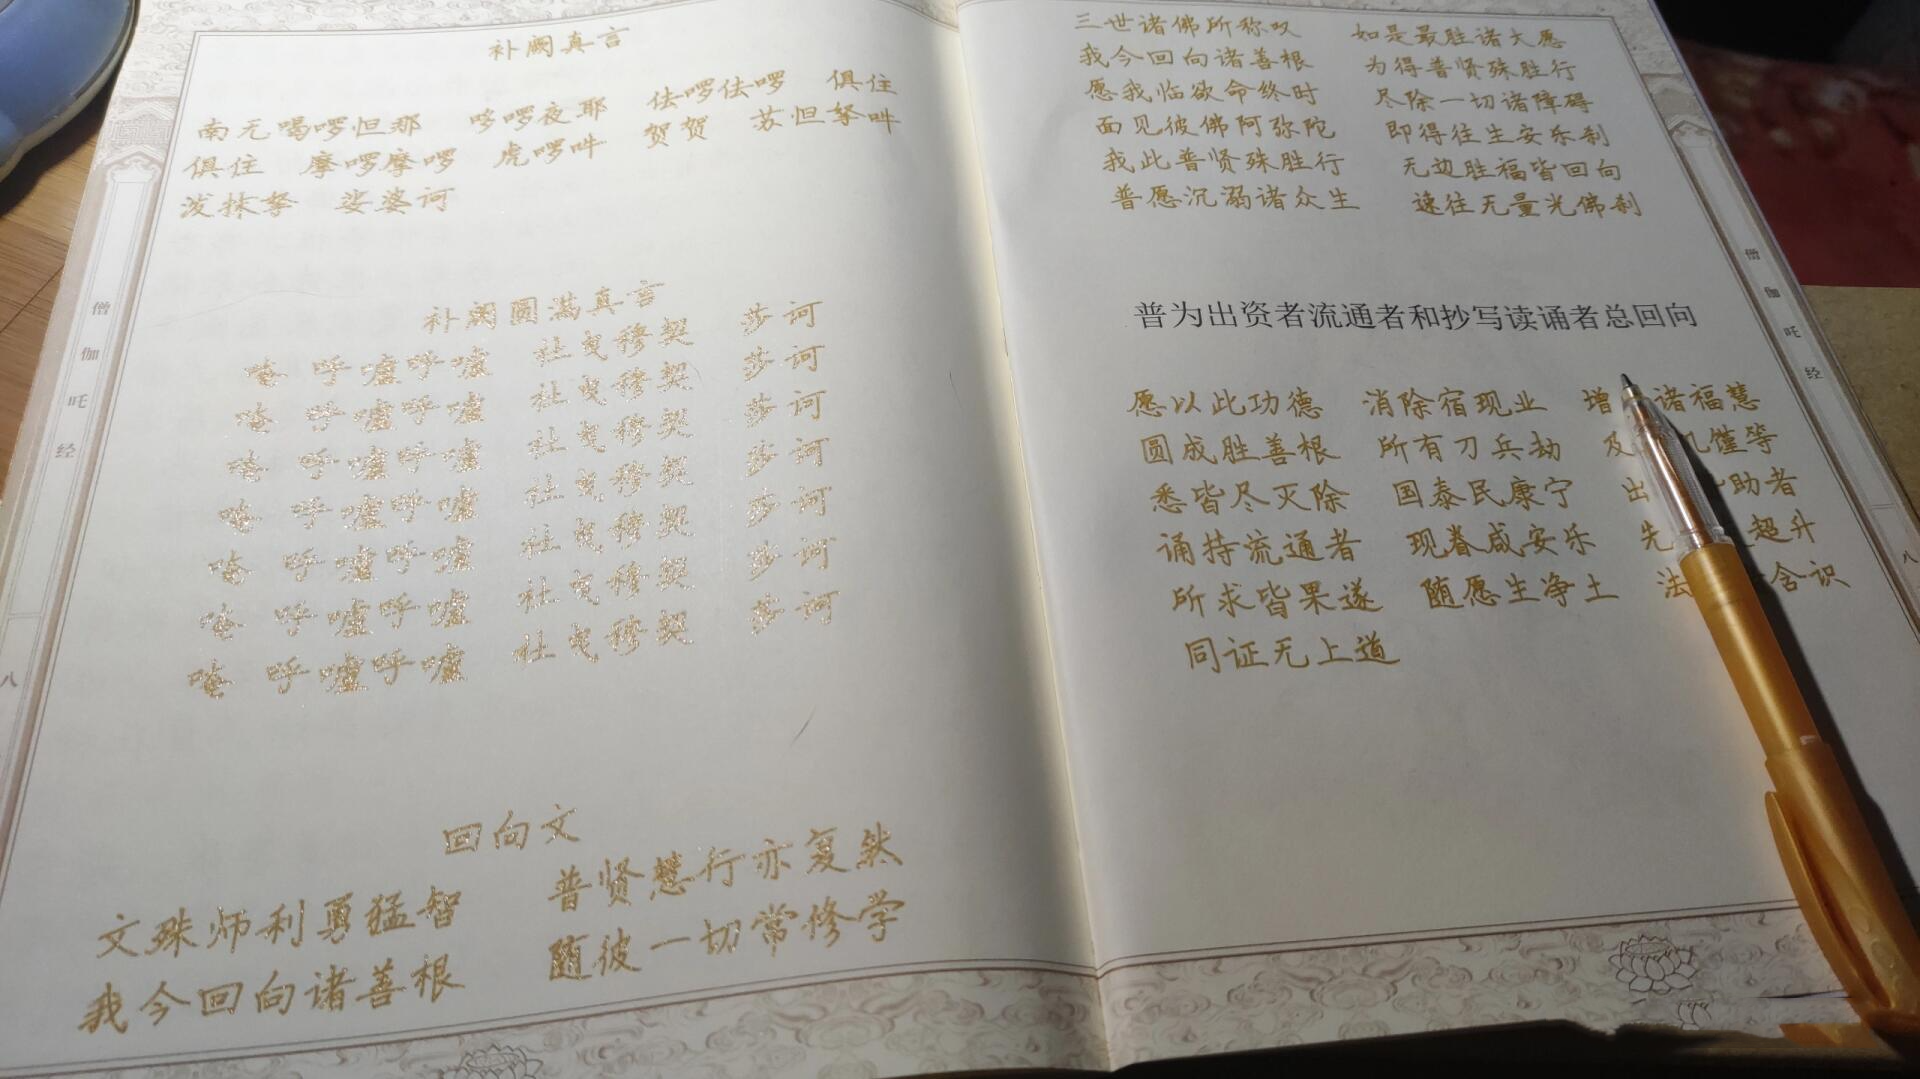 补阙真言
南无喝啰怛那 哆啰夜耶 佉啰佉啰 俱住
俱住 摩啰摩啰 虎啰吽 贺贺 苏怛拏吽
泼抹拏 娑婆诃
补阙圆满真言
唵 呼嚧呼嚧 社曳穆契 莎诃
唵 呼嚧呼嚧 社曳穆契 莎诃
唵 呼嚧呼嚧 社曳穆契 莎诃
唵 呼嚧呼嚧 社曳穆契 莎诃
唵 呼嚧呼嚧 社曳穆契 莎诃
唵 呼嚧呼嚧 社曳穆契 莎诃
唵 呼嚧呼嚧 社曳穆契 莎诃
回向文
文殊师利勇猛智 普贤慧行亦复然
我今回向诸善根 随彼一切常修学
僧伽吒经
八
三世诸佛所称叹 如是最胜诸大愿
我今回向诸善根 为得普贤殊胜行
愿我临欲命终时 尽除一切诸障碍
面见彼佛阿弥陀 即得往生安乐刹
我此普贤殊胜行 无边胜福皆回向
普愿沉溺诸众生 速往无量光佛刹
普为出资者流通者和抄写读诵者总回向
愿以此功德 消除宿现业 增 诸福慧
圆成胜善根 所有刀兵劫 及 饥馑等
悉皆尽灭除 国泰民康宁 出 助者
诵持流通者 现眷咸安乐 先 超升
所求皆果遂 随愿生净土 法 含识
同证无上道
僧伽吒经
八